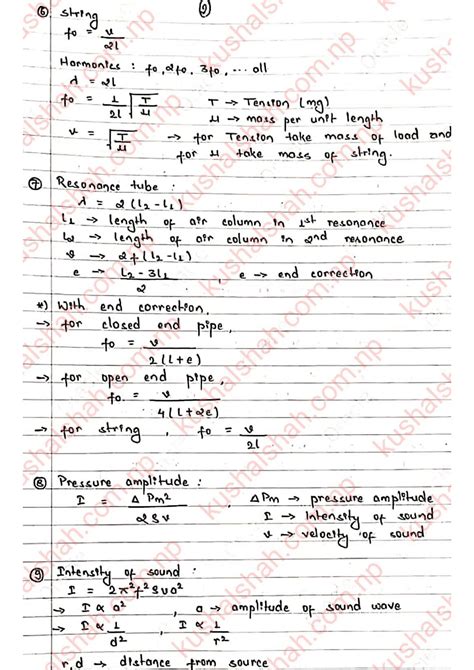 (9)
⑥ string
f₀ = v / 2l
Harmonics : f₀, 2f₀, 3f₀, ... all
λ = 2l
f₀ = 1/2l √(T/μ)    T → Tension (mg)
μ → mass per unit length
v = √(T/μ) → for Tension take mass of load and
for μ take mass of string.
⑦ Resonance tube :
λ = 2(l₂-l₁)
l₁ → length of air column in 1st resonance
l₂ → length of air column in 2nd resonance
v → 2f(l₂-l₁)
e → (l₂-3l₁) / 2 , e → end correction
*) With end correction,
→ for closed end pipe,
f₀ = v / 2(l+e)
→ for open end pipe,
f₀ = v / 4(l+2e)
→ for string , f₀ = v / 2l
⑧ Pressure amplitude :
I = ΔPm² / 2ρv , ΔPm → pressure amplitude
I → Intensity of sound
v → velocity of sound
⑨ Intensity of sound :
I = 2π²f²ρva²
→ I ∝ a² , a → amplitude of sound wave
→ I ∝ 1/d² , I ∝ 1/r²
r,d → distance from source
kushalshah.com.np